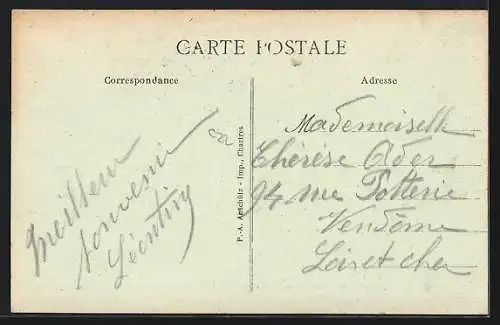 CARTE POSTALE
Correspondance
Adresse
Meilleur
souvenir
Léontine
P.-A. Artschütz - Imp., Chartres
Mademoiselle
Thérèse Ader
94 rue Potterie
Vendôme
Loir et cher